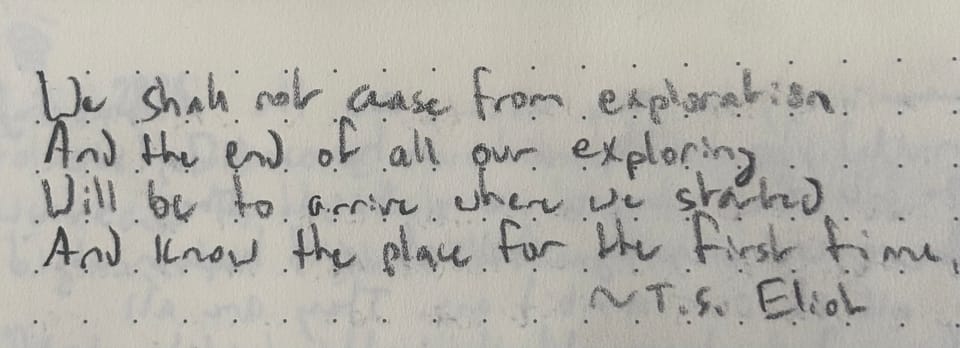 We shall not cease from exploration
And the end of all our exploring
Will be to arrive where we started
And know the place for the first time.
~T.S. Eliot